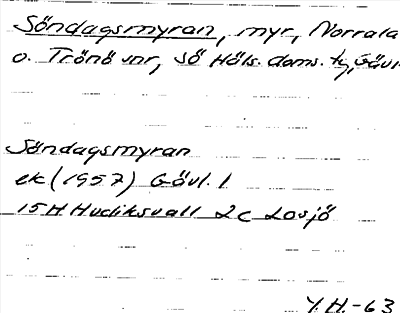 Söndagsmyran, myr, Norrala
o. Trönö snr, Sö Häls. doms. tg, Gävl.
Söndagsmyran
ek (1957) Gävl. l
15H Hudiksvall 2c Losjö
Y.H.-63